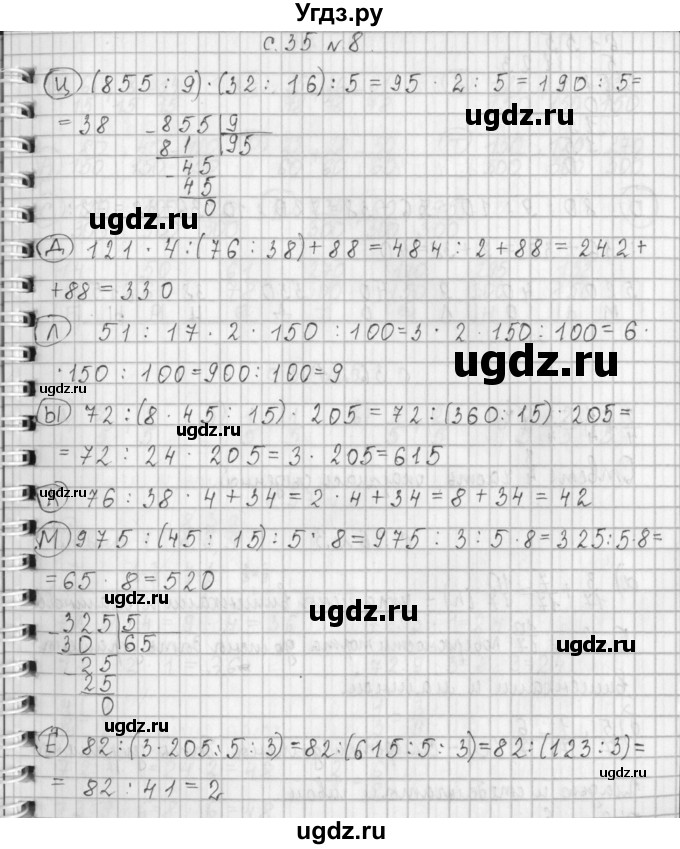 Угдз.ру
с.35 №8
Ц (855 : 9) · (32 : 16) : 5 = 95 · 2 : 5 = 190 : 5=
= 38 - 855 | 9
81 95
ugdz.ru
- 45
45
0
ugdz.ru
Д 121 · 4 : (76 : 38) + 88 = 484 : 2 + 88 = 242 +
+88 = 330
ugdz.ru
Л 51 : 17 · 2 · 150 : 100=3 · 2 · 150 : 100= 6 ·
ugdz.ru
· 150 : 100=900 : 100=9
ugdz.ru
Ы 72 : (8 · 45 : 15) · 205 = 72 : (360 : 15) · 205=
ugdz.ru
= 72 : 24 · 205 = 3 · 205=615
76 : 38 · 4 + 34 = 2 · 4 + 34 = 8 + 34 = 42
ugdz.ru
М 975 : (45 : 15) : 5 · 8 = 975 : 3 : 5 · 8 = 325:5·8=
= 65 · 8 = 520
ugdz.ru
ugdz.ru
- 325 | 5
30 65
- 25
25
0
ugdz.ru
Ё 82 : (3 · 205 : 5 : 3) = 82 : (615 : 5 : 3)=82 : (123 : 3)=
ugdz.ru
= 82 : 41 = 2
ugdz.ru